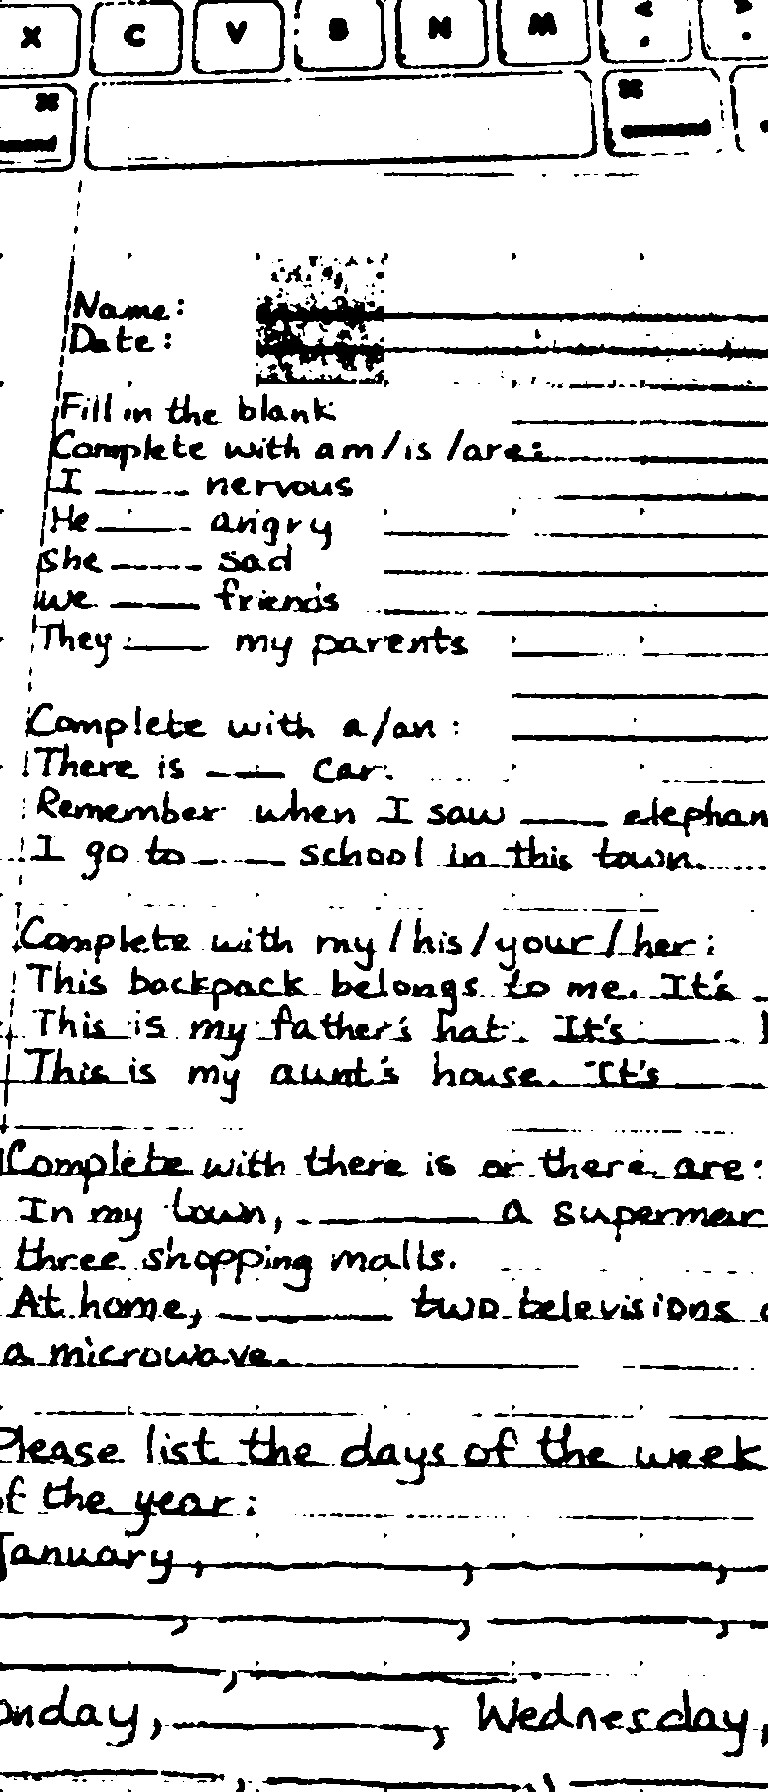 X C V B N M < ,
⌘ ⌘
command
Name:
Date:
Fill in the blank
Complete with am/is/are:
I ____ nervous
He ____ angry
She ____ sad
we ____ friends
They ____ my parents
Complete with a/an:
There is ____ car.
Remember when I saw ____ elephan
I go to ____ school in this town.
Complete with my/his/your/her:
This backpack belongs to me. It's
This is my father's hat. It's ____
This is my aunt's house. It's ____
Complete with there is or there are:
In my town, ____ a supermar
three shopping malls.
At home, ____ two televisions
a microwave.
Please list the days of the week
of the year:
January, ____, ____,
____, ____, ____,
____, ____
onday, ____, Wednesday,
____, ____, ____